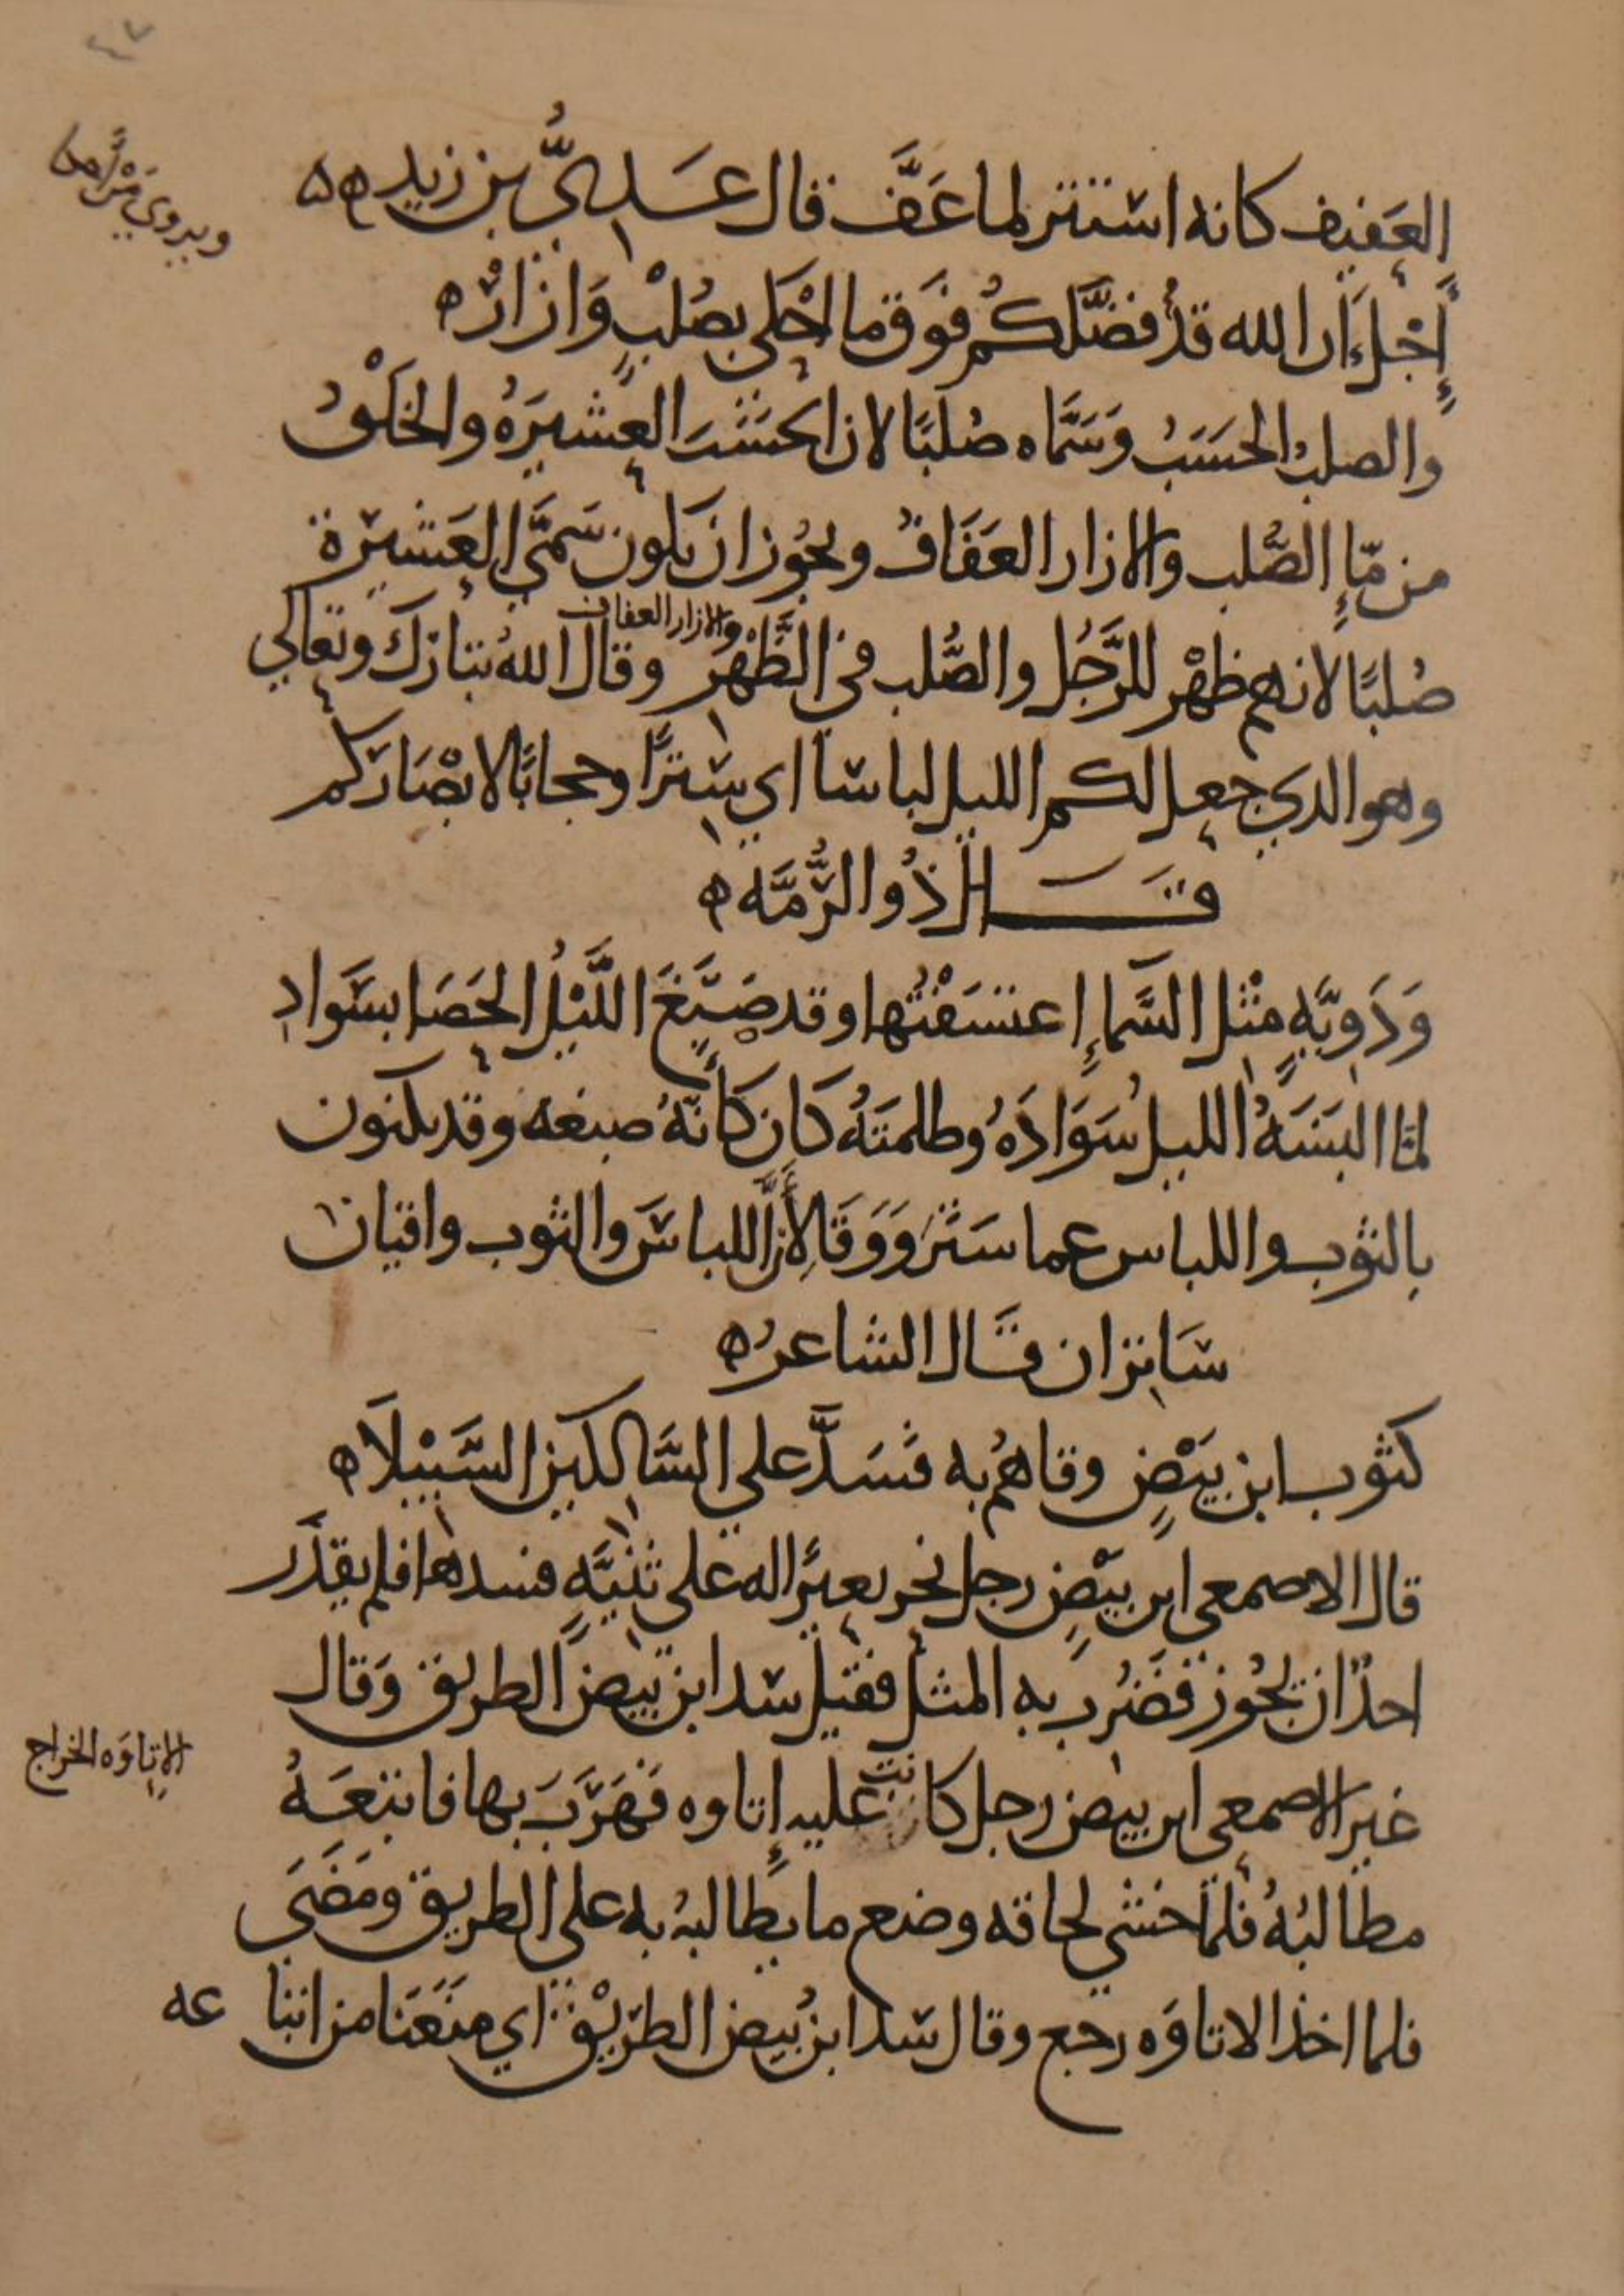 ٤٧
العَفيف كانه استتر لما عَفَّ قال عَدِيُّ بن زيد ه
ويروي مَنْ
أَجْلَ أن الله قد فضَّلكُم فَوقَ ما احْكى بصُلْبٍ وَازارْ ه
والصلبُ الحسَبُ وَسَمَّاه صُلبًا لان الحسَبَ العشيرَةُ والخَلْقُ
من مّاءِ الصُّلب والازار العَفَافُ ويجُوز ان يكون سَمَّى العَشيرَة
صُلبًا لانهم ظهْر للرَّجُل والصُّلب في الظَّهْر والازار العفاف وقال اللهُ تبارَكَ وتعالي
وهو الدي جعل لكم الليل لباسا اي سِترًا وحجابًا لابْصَارَكم
قال ذُو الرُّمَّه ه
وَدَوِيَّهٍ مثْل السَّماءِ إعتسَفْتُها وقد صَبَغَ اللَّيْلُ الحَصَا بسَوادِ
لمَّا البَسَهُ الليلُ سَوَادَهُ وظلمَتَهُ كَان كَأنَّهُ صبغه وقد يكنون
بالثوب واللباس عما سَتَرَ وَوَقَا لأنَّ اللباسَ والثوب واقيان
سَاتران قال الشاعرُ ه
كثوب ابن بيَضٍ وقاهُم به فسَدَّ علي السَّالكين السَّبيْلاَ ه
قال الاصمعي ابن بيْضٍ رجل نحر بعيرًا له علي ثنيَّهٍ فسدها فلم يقدَر
احدٌ ان يجُوز فضُربَ به المثل فقيل سد ابن بيضٍ الطريق وَقال
غير الاصمعي ابن بيض رجل كانت عليه إتاوه فَهَرَّبَ بها فاتبعَهُ
الإتاوَه الخراج
مطالبُهُ فلمَّا خشي لحاقه وضع ما يطالبهُ به علي الطريق ومَضَي
فلما اخذ الاتاوَه رجع وقال سَدَّ ابنُ بيض الطرَيْق اي منَعَنا من اتبا عه